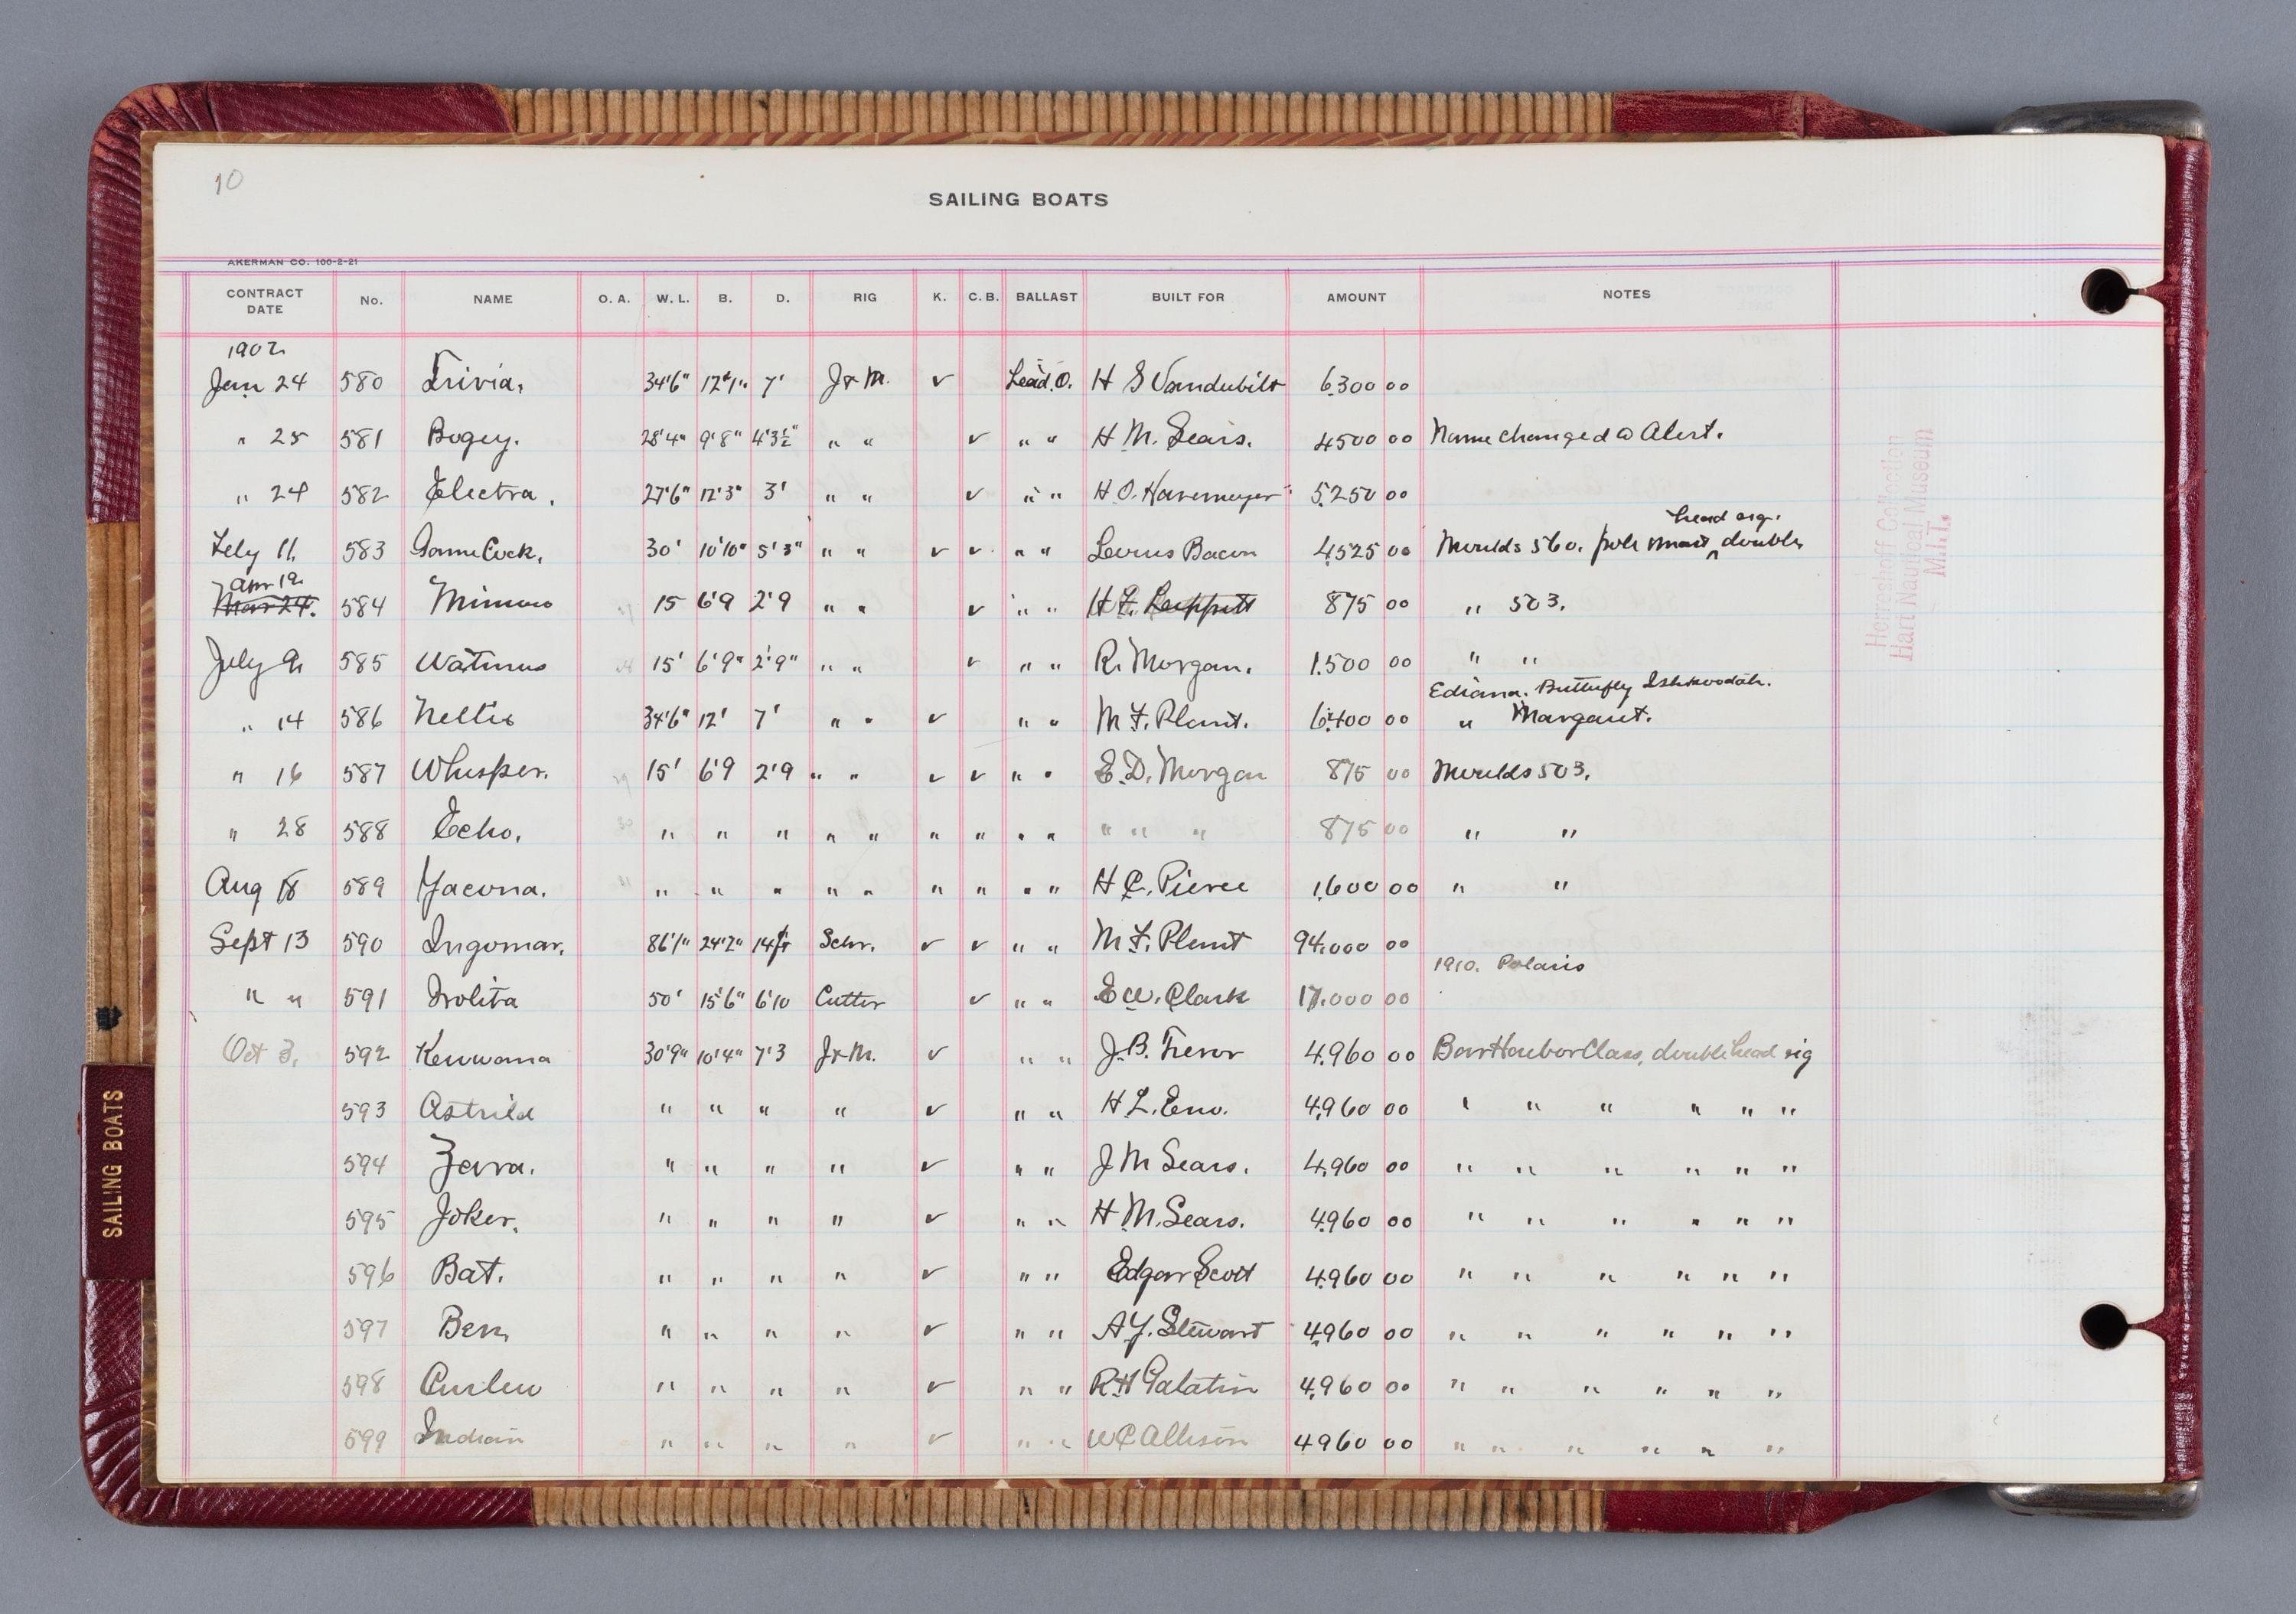 10
SAILING BOATS
AKERMAN CO. 100-2-21
CONTRACT DATE No. NAME O. A. W. L. B. D. RIG K. C. B. BALLAST BUILT FOR AMOUNT NOTES
1902
Jan 24 580 Trivia. 34'6" 12'1" 7' J & M. ✓ Lead. O. H S Vanderbilt 6300 00
" 25 581 Bogey. 28'4" 9'8" 4'3½" " " ✓ " " H M. Sears. 4500 00 Name changed to Alert.
" 24 582 Electra. 27'6" 12'3" 3' " " ✓ " " H. O. Havemeyer 5250 00
head rig.
Feby 11. 583 Game Cock. 30' 10'10" 5'3" " " ✓ ✓ " " Louis Bacon 4525 00 Moulds 560. pole mast ^ double
Apr 19
Mar 24. 584 Mimo 15 6'9 2'9 " " ✓ " " H F. Lippitt 875 00 " 503.
July 9. 585 Waturus 15' 6'9" 2'9" " " ✓ " " R. Morgan. 1500 00 " "
Ediana. Butterfly Ishkoodah.
" 14 586 Nellie 34'6" 12' 7' " " ✓ " " M F. Plant. 6400 00 " Margaret.
" 16 587 Whisper. 15' 6'9 2'9 " " ✓ ✓ " " E. D. Morgan 875 00 Moulds 503.
" 28 588 Echo. " " " " " " " " " " " " 875 00 " "
Aug 18 589 Yacona. " " " " " " " " " H C. Pierce 1600 00 " "
Sept 13 590 Ingomar. 86'1" 24'2" 14 Schr. ✓ ✓ " " M F. Plant 94.000 00
1910. Polaris
" " 591 Irolita 50' 15'6" 6'10 Cutter ✓ " " E W. Clark 17.000 00
Oct 3. 592 Kenwana 30'9" 10'4" 7'3 J & M. ✓ " " J. B. Trevor 4960 00 Bar Harbor Class, double head rig
593 Astrild " " " " ✓ " " H L. Eno. 4960 00 " " " " " "
594 Zarra. " " " " ✓ " " J M Sears. 4960 00 " " " " " "
595 Joker. " " " " ✓ " " H M. Sears. 4960 00 " " " " " "
596 Bat. " " " " ✓ " " Edgar Scott 4960 00 " " " " " "
597 Bek " " " " ✓ " " A J. Stewart 4960 00 " " " " " "
598 Curlew " " " " ✓ " " R. H Galatin 4960 00 " " " " " "
599 Indian " " " " ✓ " " W C Allison 4960 00 " " " " " "
Herreshoff Collection
Hart Nautical Museum
M.I.T.
SAILING BOATS